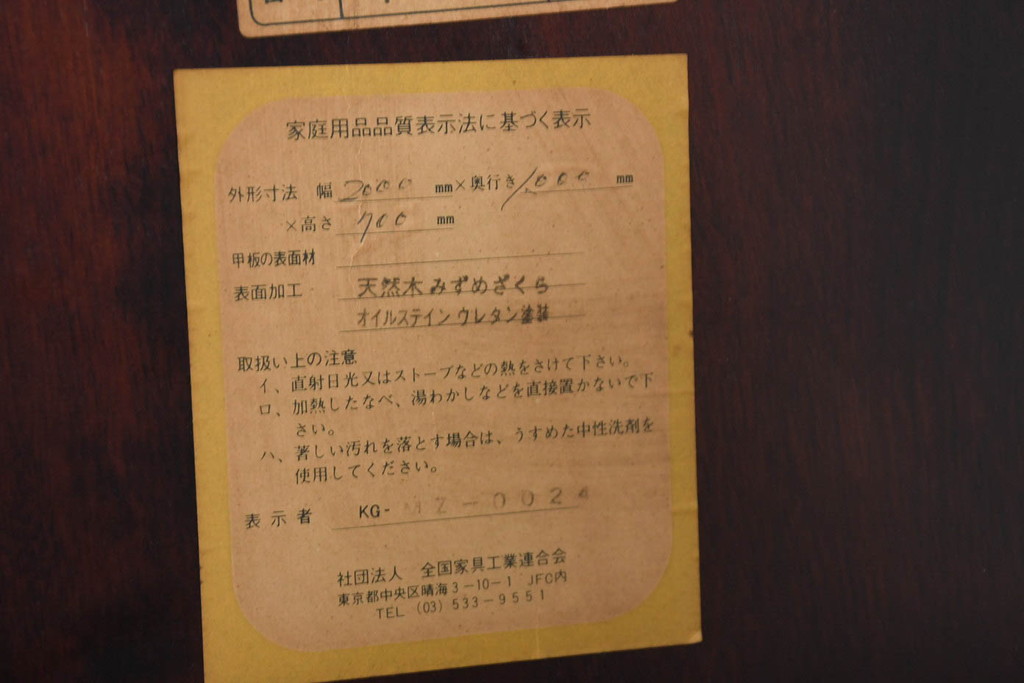 家庭用品品質表示法に基づく表示
外形寸法 幅 2000 mm×奥行き 1,000 mm
×高さ 700 mm
甲板の表面材
表面加工 天然木みずめざくら
オイルステインウレタン塗装
取扱い上の注意
イ、直射日光又はストーブなどの熱をさけて下さい。
ロ、加熱したなべ、湯わかしなどを直接置かないで下
さい。
ハ、著しい汚れを落とす場合は、うすめた中性洗剤を
使用してください。
表示者 KG-MZ-0024
社団法人 全国家具工業連合会
東京都中央区晴海3-10-1 JFC内
TEL (03)533-9551